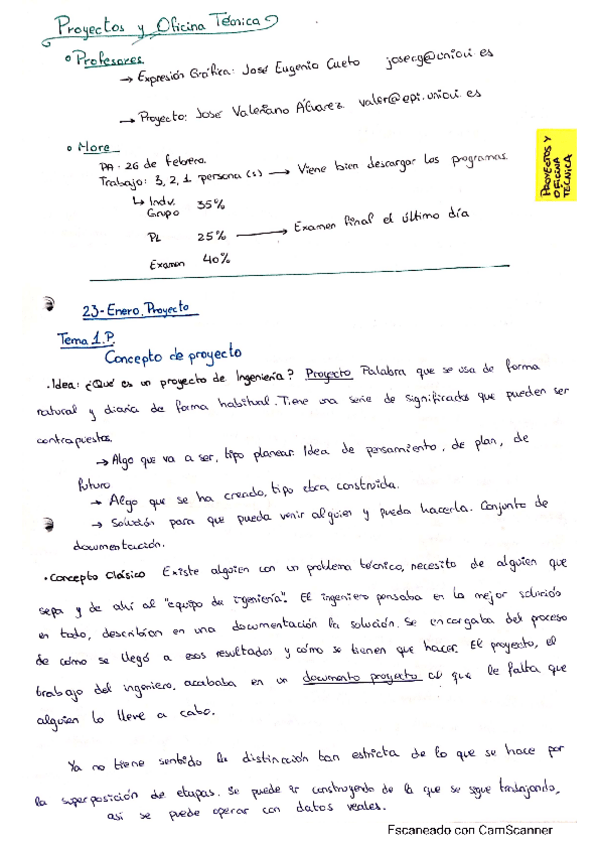 Proyectos y Oficina Técnica
• Profesores
→ Expresión Gráfica: José Eugenio Cueto josecg@uniovi.es
→ Proyecto: José Valeriano Álvarez valer@epi.uniovi.es
• More
PA. 26 de febrero.
Trabajo: 3, 2, 1 persona(s) → Viene bien descargar los programas.
↳ Indv. Grupo 35%
PL 25% → Examen final el último día
Examen 40%
PROYECTOS Y OFICINA TÉCNICA
23-Enero. Proyecto
Tema 1.P.
Concepto de proyecto
• Idea: ¿Qué es un proyecto de Ingeniería? Proyecto Palabra que se usa de forma
natural y diaria de forma habitual. Tiene una serie de significados que pueden ser
contrapuestos.
→ Algo que va a ser, tipo planear. Idea de pensamiento, de plan, de
futuro
→ Algo que se ha creado, tipo obra construida.
→ Solución para que pueda venir alguien y pueda hacerla. Conjunto de
documentación.
• Concepto Clásico Existe alguien con un problema técnico, necesito de alguien que
sepa y de ahí al "equipo de ingeniería". El ingeniero pensaba en la mejor solución
en todo, describían en una documentación la solución. Se encargaba del proceso
de cómo se llegó a esos resultados y cómo se tienen que hacer. El proyecto, el
trabajo del ingeniero, acababa en un documento proyecto al que le falta que
alguien lo lleve a cabo.
Ya no tiene sentido la distinción tan estricta de lo que se hace por
la superposición de etapas. Se puede ir construyendo de la que se sigue trabajando,
así se puede operar con datos reales.
Escaneado con CamScanner